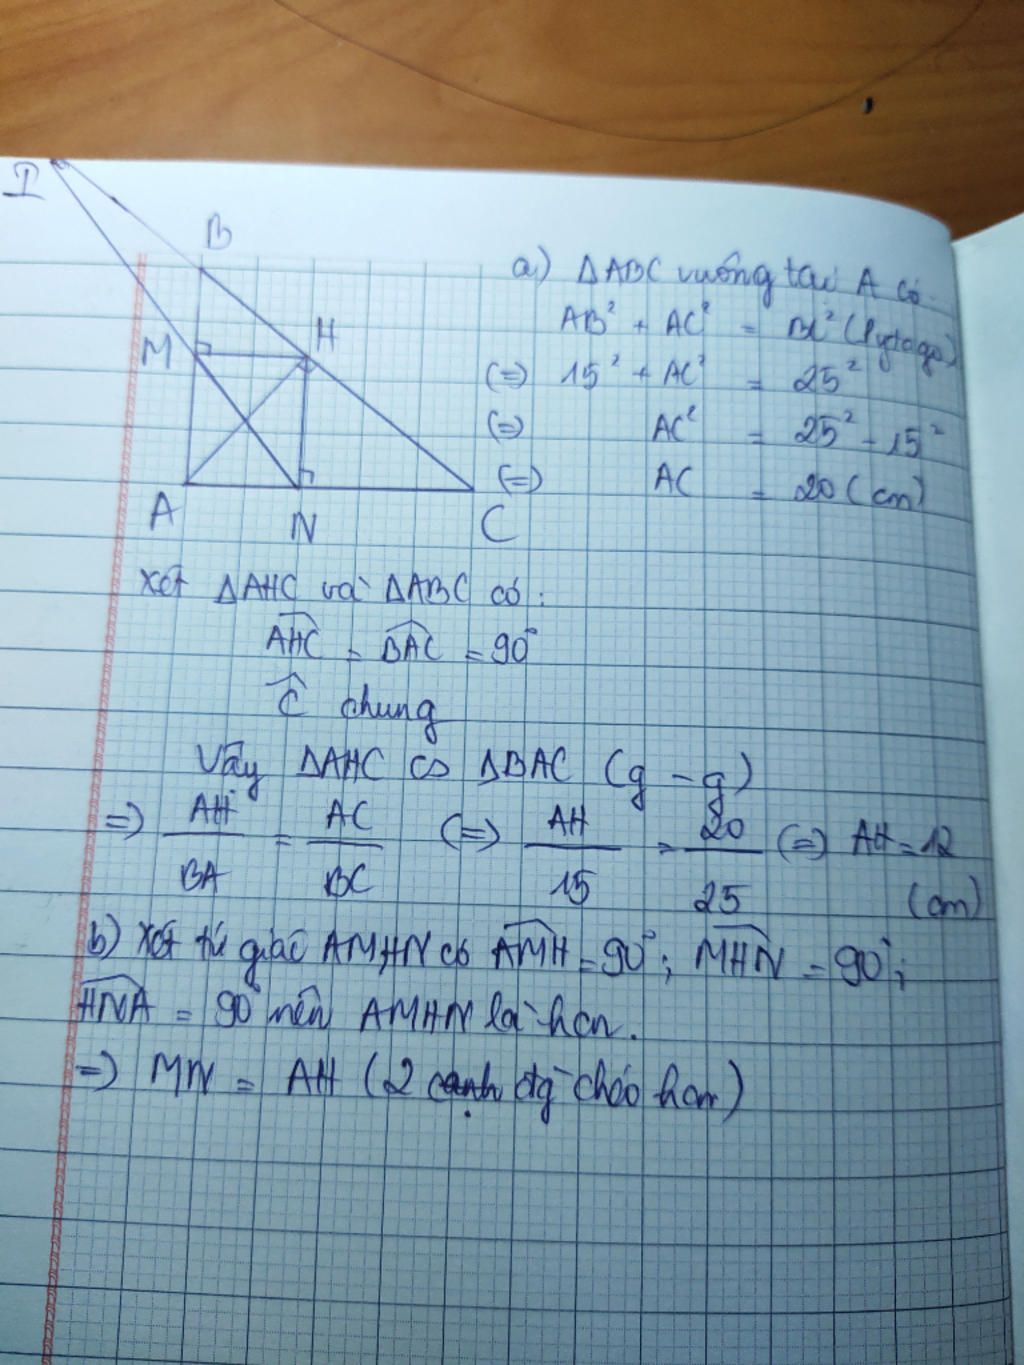 I
B
H
M
A
N
C
a) ΔABC vuông tại A có
AB² + AC² = BC² (Pytago)
(=) 15² + AC² = 25²
(=) AC² = 25² - 15²
(=) AC = 20 (cm)
Xét ΔAHC và ΔABC có:
AHC = BAC = 90°
C chung
Vậy ΔAHC ∽ ΔBAC (g - g)
=) AH/BA = AC/BC (=) AH/15 = 20/25 (=) AH = 12
(cm)
b) Xét tứ giác AMHN có AMH = 90°; MHN = 90°;
HNA = 90° nên AMHN là hcn.
=) MN = AH (2 cạnh đg chéo hcn)